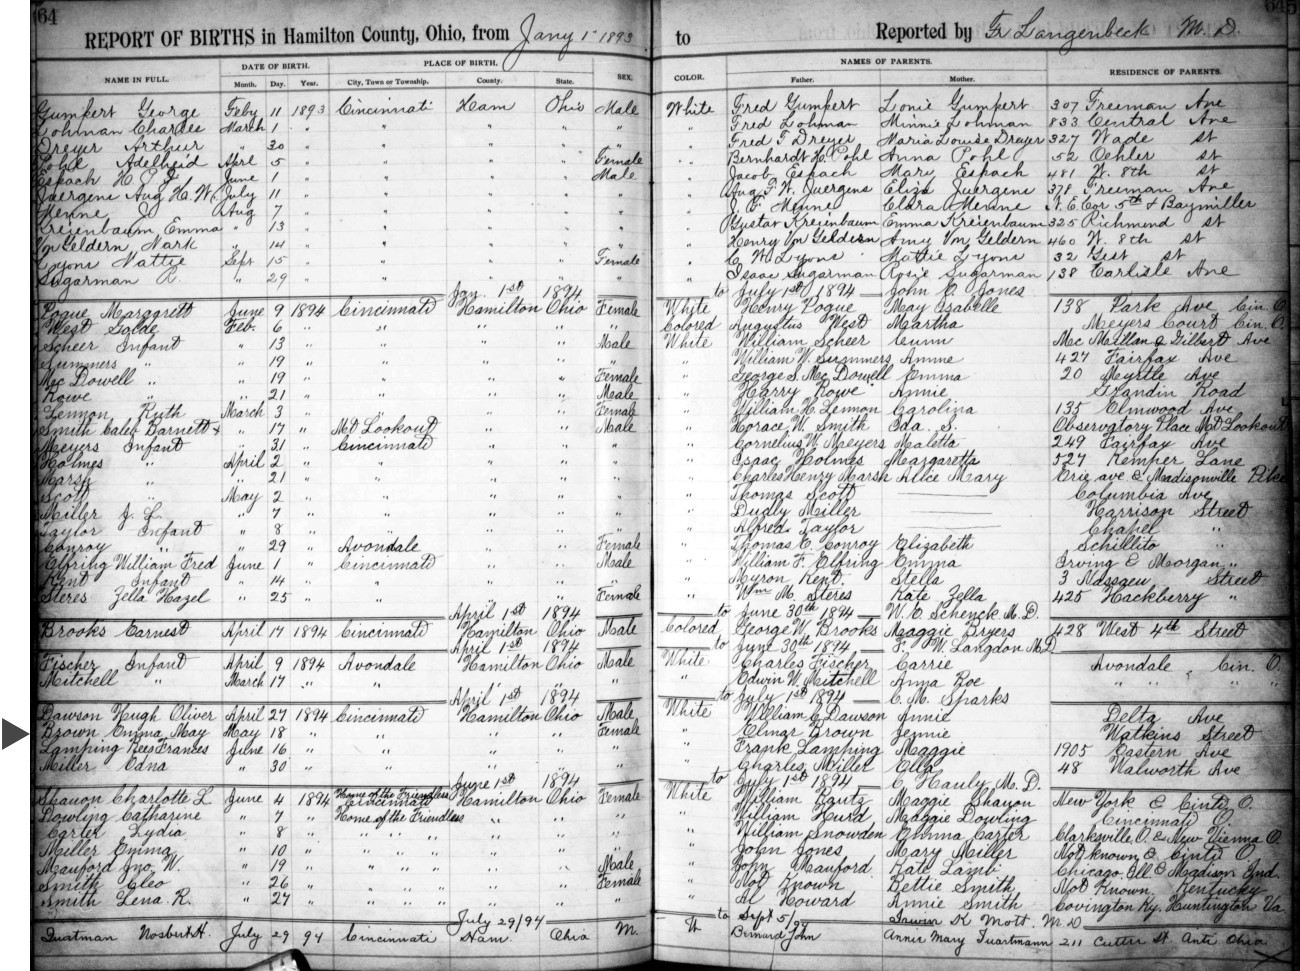 64 645
REPORT OF BIRTHS in Hamilton County, Ohio, from Jany 1st 1893 to Reported by Fr Langenbeck M.D.
NAME IN FULL. DATE OF BIRTH. PLACE OF BIRTH. SEX. COLOR. NAMES OF PARENTS. RESIDENCE OF PARENTS.
Month. Day. Year. City, Town or Township. County. State. Father. Mother.
Gumpert George Feby 11 1893 Cincinnati Ham Ohio Male White Fred Gumpert Lonie Gumpert 307 Freeman Ave
Lohman Charles March 1 " " " " " " Fred Lohman Minnie Lohman 833 Central Ave
Dreyer Arthur " 30 " " " " " " Fred T Dreyer Maria Louise Dreyer 327 Wade st
Pohl Adelheid April 5 " " " " Female " Bernhardt H. Pohl Anna Pohl 52 Oehler st
Espach H. P. J. June 1 " " " " Male " Jacob Espach Mary Espach 481 W. 8th st
Juergens Aug H. W. July 11 " " " " " " Aug F. W. Juergens Eliza Juergens 378 Freeman Ave
Menne Aug 7 " " " " " " J. F. Menne Clara Menne N. E. Cor 5th & Baymiller
Kreienbaum Emma " 13 " " " " " " Gustav Kreienbaum Emma Kreienbaum 325 Richmond st
Von Geldern Mark " 14 " " " " " " Henry Von Geldern Amy Von Geldern 460 W. 8th st
Lyons Mattie Sept 15 " " " " Female " C. W. Lyons Mattie Lyons 32 Gest st
Sugarman R. " 29 " " " " " " Isaac Sugarman Rosie Sugarman 138 Carlisle Ave
Jan. 1st 1894 to July 1st 1894 John E. Jones
Pogue Margarett June 9 1894 Cincinnati Hamilton Ohio Female White Henry Pogue May Isabelle 138 Park Ave Cin. O.
West Goldie Feb. 6 " " " " " Colored Augustus West Martha Meyers Court Cin. O.
Scheer Infant " 13 " " " " Male White William Scheer Mc Millan & Gilbert Ave
Summers " " 19 " " " " " " William W. Summers Annie 427 Fairfax Ave
Mc Dowell " " 19 " " " " Female " George S. Mc Dowell Emma 20 Myrtle Ave
Rowe " " 21 " " " " Male " Harry Rowe Annie Grandin Road
Lemmon Ruth March 3 " " " " Female " William H. Lemmon Carolina 135 Elmwood Ave
Smith Caleb Barnett " 17 " Mt Lookout " " Male " Horace W. Smith Ida. S. Observatory Place Mt Lookout
Meyers Infant " 31 " Cincinnati " " " " Cornelius W. Meyers Maletta 249 Fairfax Ave
Holmes " April 2 " " " " " " Isaac Holmes Margaretta 527 Kemper Lane
Marsh " " 21 " " " " " " Charles Henry Marsh Alice Mary Erie ave & Madisonville Pike
Scott " May 2 " " " " " " Thomas Scott Columbia Ave
Miller J. L. " 7 " " " " " " Dudly Miller Harrison Street
Taylor Infant " 8 " " " " " " Alfred Taylor Chapel "
Conroy " " 29 " Avondale " " Female " Thomas C. Conroy Elizabeth Schillito "
Olfring William Fred June 1 " Cincinnati " " Male " William F. Olfring Emma Irving & Morgan "
Kent Infant " 14 " " " " " " Myron Kent. Stella 3 Nassau Street
Steres Zella Hazel " 25 " " " " Female " Wm M. Steres Kate Zella 425 Hackberry "
April 1st 1894 to June 30th 1894 W. E. Schenck M.D.
Brooks Earnest April 17 1894 Cincinnati Hamilton Ohio Male Colored George W. Brooks Maggie Bryers 428 West 4th Street
April 1st 1894 to June 30th 1894 F. W. Langdon M.D
Fischer Infant April 9 1894 Avondale Hamilton Ohio Male White Charles Fischer Carrie Avondale Cin. O.
Mitchell " March 17 " " " " " " Edwin W. Mitchell Anna Roe " " "
April 1st 1894 to July 1st 1894 C. M. Sparks
Dawson Hugh Oliver April 27 1894 Cincinnati Hamilton Ohio Male White William C. Dawson Annie Delta Ave
Brown Emma May May 18 " " " " Female " Elmar Brown Jennie Watkins Street
Lamping Frances June 16 " " " " " " Frank Lamping Maggie 1905 Eastern Ave
Miller Edna " 30 " " " " " " Charles Miller Ella 48 Walworth Ave
June 1st 1894 to July 1st 1894 C. Hauly M. D.
Shauon Charlotte L. June 4 1894 Home of the Friendless Cincinnati Hamilton Ohio Female White William Maggie Shauon New York & Cinti O.
Dowling Catharine " 7 " Home of the Friendless " " " " William Hurd Maggie Dowling Cincinnati O.
Carter Lydia " 8 " " " " " " William Snowden Emma Carter Clarksville O. & New Vienna O.
Miller Emma " 10 " " " " " " John Jones Mary Miller Not known & Cinti O.
Mauford Jno. W. " 19 " " " " Male " John Mauford Kate Lamb Chicago Ill & Madison Ind.
Smith Cleo " 26 " " " " Female " Not Known Bettie Smith Not Known. Kentucky
Smith Lena R. " 27 " " " " " " Al Howard Annie Smith Covington Ky. Huntington Va
July 29/94 to Sept 5/9 Irwin H Mott. M.D
Tuartman Nosbert H. July 29 94 Cincinnati Ham. Ohio M. W Bernard John Annie Mary Tuartmann 211 Cutter St Ohio